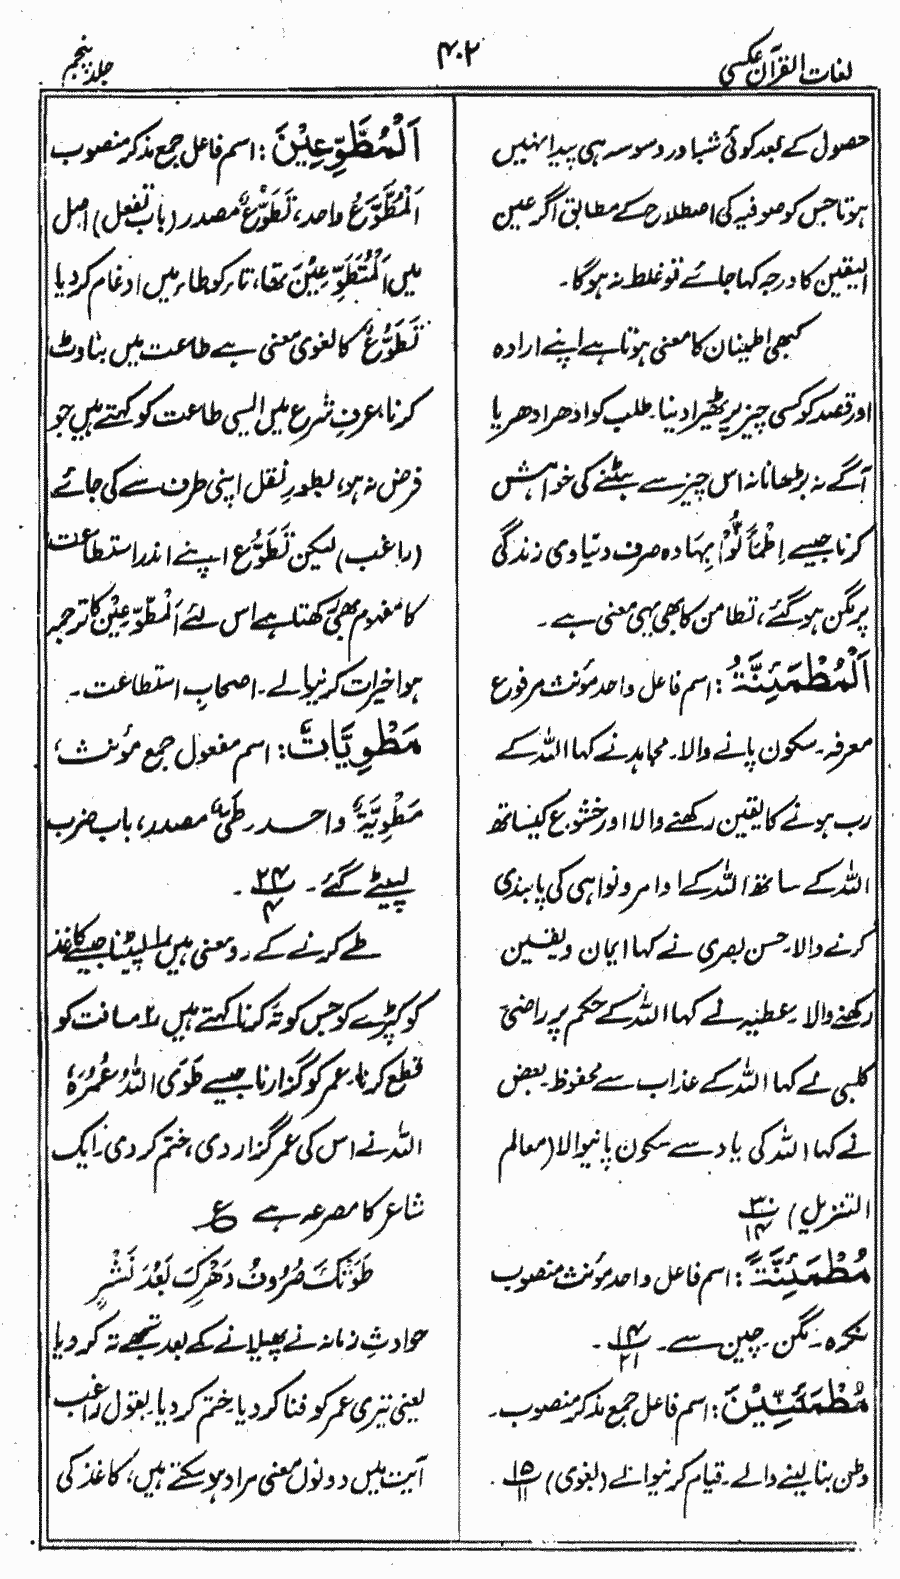 لغات القرآن عکسی
۴۰۲
جلد پنجم
حصول کے بعد کوئی شبہ اور وسوسہ ہی پیدا نہیں
ہوتا جس کو صوفیہ کی اصطلاح کے مطابق اگر عین
الیقین کا درجہ کہا جائے تو غلط نہ ہوگا۔
کبھی اطینان کا معنی ہوتا ہے اپنے ارادہ
اور قصد کو کسی چیز پر ٹھیرا دینا۔ طلب کو ادھر ادھر یا
آگے نہ بڑھانا نہ اس چیز سے ہٹنے کی خواہش
کرنا جیسے اِطْمَأَنُّوْا بِہَا وہ صرف دنیاوی زندگی
پر مگن ہو گئے، تطامن کا بھی یہی معنی ہے۔
اَلْمُطْمَئِنَّۃُ : اسم فاعل واحد مؤنث مرفوع
معرفہ۔ سکون پانے والا۔ مجاہد نے کہا اللہ کے
رب ہونے کا یقین رکھنے والا اور خشوع کیساتھ
اللہ کے ساتھ اللہ کے اوامر و نواہی کی پابندی
کرنے والا۔ حسن بصری نے کہا ایمان و یقین
رکھنے والا۔ عطیہ نے کہا اللہ کے حکم پر راضی
کلبی نے کہا اللہ کے عذاب سے محفوظ۔ بعض
نے کہا اللہ کی یاد سے سکون پانیوالا (معالم
التنزیل) ۳۰/۱۴
مُطْمَئِنَّۃً : اسم فاعل واحد مؤنث منصوب
نکرہ۔ مگن۔ چین سے۔ ۱۴/۲۱ ۔
مُطْمَئِنِّیْنَ : اسم فاعل جمع مذکر منصوب۔
وطن بنا لینے والے۔ قیام کرنیوالے (لغوی) ۱۵/۱۱ ۔
اَلْمُطَّوِّعِیْنَ : اسم فاعل جمع مذکر منصوب
اَلْمُطَّوِّعُ واحد، تَطَوُّعٌ مصدر (باب تفعل) اصل
میں اَلْمُتَطَوِّعِیْنَ تھا، تاء کو طاء میں ادغام کر دیا
تَطَوُّعٌ کا لغوی معنی ہے طاعت میں بناوٹ
کرنا، عرفِ شرع میں ایسی طاعت کو کہتے ہیں جو
فرض نہ ہو، بطورِ نفل اپنی طرف سے کی جائے
(راغب) لیکن تَطَوُّع اپنے اندر استطاعت
کا مفہوم بھی رکھتا ہے اس لئے اَلْمُطَّوِّعِیْنَ کا ترجمہ
ہوا خیرات کرنیوالے۔ اصحابِ استطاعت۔
مَطْوِیَّاتٌ : اسم مفعول جمع مؤنث،
مَطْوِیَّۃٌ واحد۔ طَیٌّ مصدر، باب ضرب
لپیٹے گئے۔ ۲۴/۴ ۔
طے کرنے کے دو معنی ہیں ۱۔ لپیٹنا جیسے کاغذ
کو کپڑے کو جس کو تہ کرنا کہتے ہیں ۲۔ مسافت کو
قطع کرنا۔ عمر کو گزارنا جیسے طَوَی اللّٰہُ عُمُرَہٗ
اللہ نے اس کی عمر گزار دی، ختم کر دی۔ ایک
شاعر کا مصرعہ ہے ؏
طَوَتْکَ صُرُوفُ دَھْرِکَ بَعْدَ نَشْرٍ
حوادثِ زمانہ نے پھیلانے کے بعد تجھے تہ کر دیا
یعنی تیری عمر کو فنا کر دیا۔ ختم کر دیا۔ بقول راغب
آیت میں دونوں معنی مراد ہو سکتے ہیں، کاغذ کی